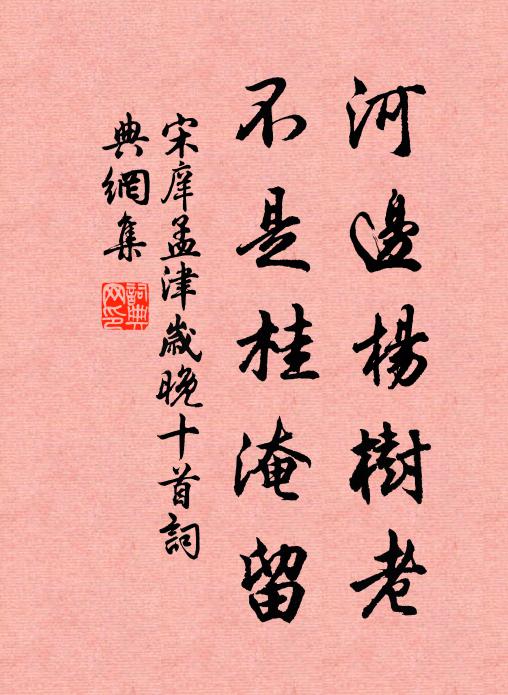 河邊楊樹老
不是桂淹留
宋庠孟津歲晚十首詞
典網集
詞典
网印